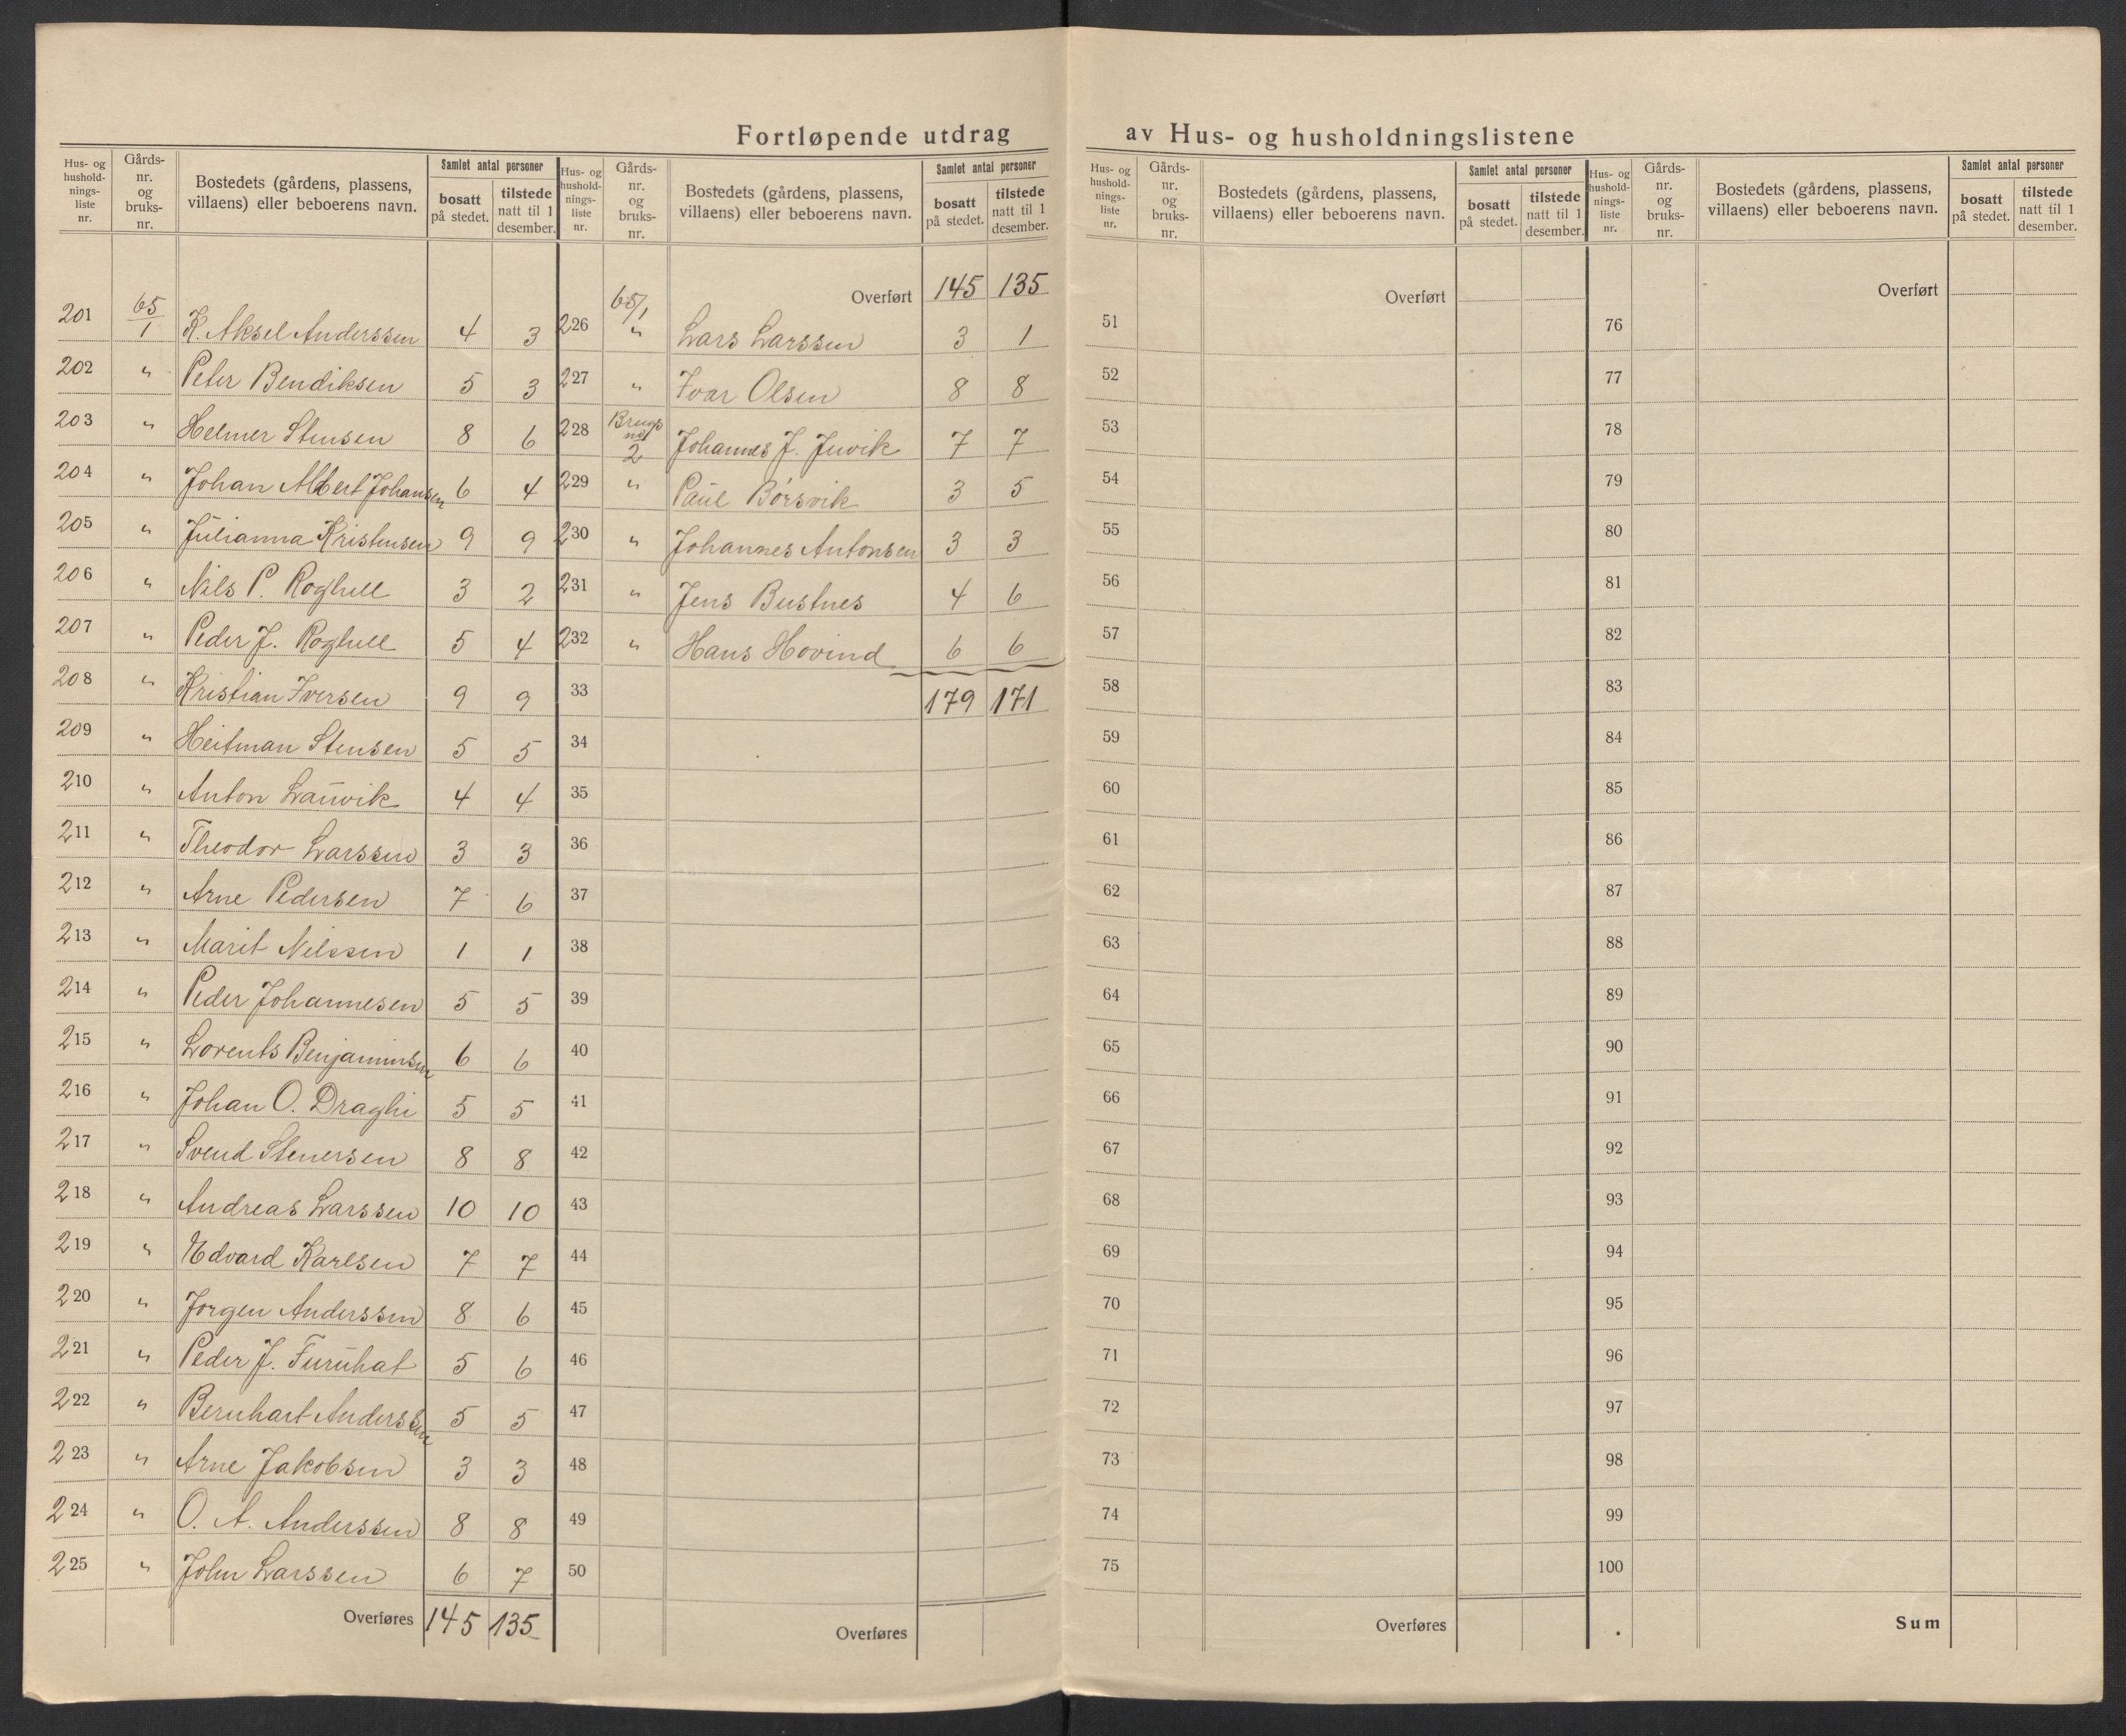 Fortløpende utdrag av Hus- og husholdningslistene
Hus- og hushold-nings-liste nr. Gårds-nr. og bruks-nr. Bostedets (gårdens, plassens, villaens) eller beboerens navn. Samlet antal personer bosatt på stedet. tilstede natt til 1 desember.
201 65/1 K. Aksel Anderssen 4 3
202 " Peter Bendiksen 5 3
203 " Helmer Stensen 8 6
204 " Johan Albert Johansen 6 4
205 " Julianna Kristensen 9 9
206 " Nils P. Roghell 3 2
207 " Peder J. Roghell 5 4
208 " Kristian Iversen 9 9
209 " Heitman Stensen 5 5
210 " Anton Lauvik 4 4
211 " Theodor Larssen 3 3
212 " Arne Pedersen 7 6
213 " Marit Nilssen 1 1
214 " Peder Johannesen 5 5
215 " Lorents Benjaminsen 6 6
216 " Johan O. Draghi 5 5
217 " Svend Stenersen 8 8
218 " Andreas Larssen 10 10
219 " Edvard Karlsen 7 7
220 " Jørgen Anderssen 8 6
221 " Peder J. Furuhat 5 6
222 " Bernhart Anderssen 5 5
223 " Arne Jakobsen 3 3
224 " O. A. Anderssen 8 8
225 " John Larssen 6 7
Overføres 145 135
Hus- og hushold-nings-liste nr. Gårds-nr. og bruks-nr. Bostedets (gårdens, plassens, villaens) eller beboerens navn. Samlet antal personer bosatt på stedet. tilstede natt til 1 desember.
Overført 145 135
226 65/1 " Lars Larssen 3 1
227 " Ivar Olsen 8 8
228 2 Johannes J. Juvik 7 7
229 " Paul Børsvik 3 5
230 " Johannes Antonsen 3 3
231 " Jens Bustnes 4 6
232 " Hans Hovind 6 6
33 179 171
34
35
36
37
38
39
40
41
42
43
44
45
46
47
48
49
50
Overføres
Hus- og hushold-nings-liste nr. Gårds-nr. og bruks-nr. Bostedets (gårdens, plassens, villaens) eller beboerens navn. Samlet antal personer bosatt på stedet. tilstede natt til 1 desember.
Overført
51
52
53
54
55
56
57
58
59
60
61
62
63
64
65
66
67
68
69
70
71
72
73
74
75
Overføres
Hus- og hushold-nings-liste nr. Gårds-nr. og bruks-nr. Bostedets (gårdens, plassens, villaens) eller beboerens navn. Samlet antal personer bosatt på stedet. tilstede natt til 1 desember.
Overført
76
77
78
79
80
81
82
83
84
85
86
87
88
89
90
91
92
93
94
95
96
97
98
99
100
Sum